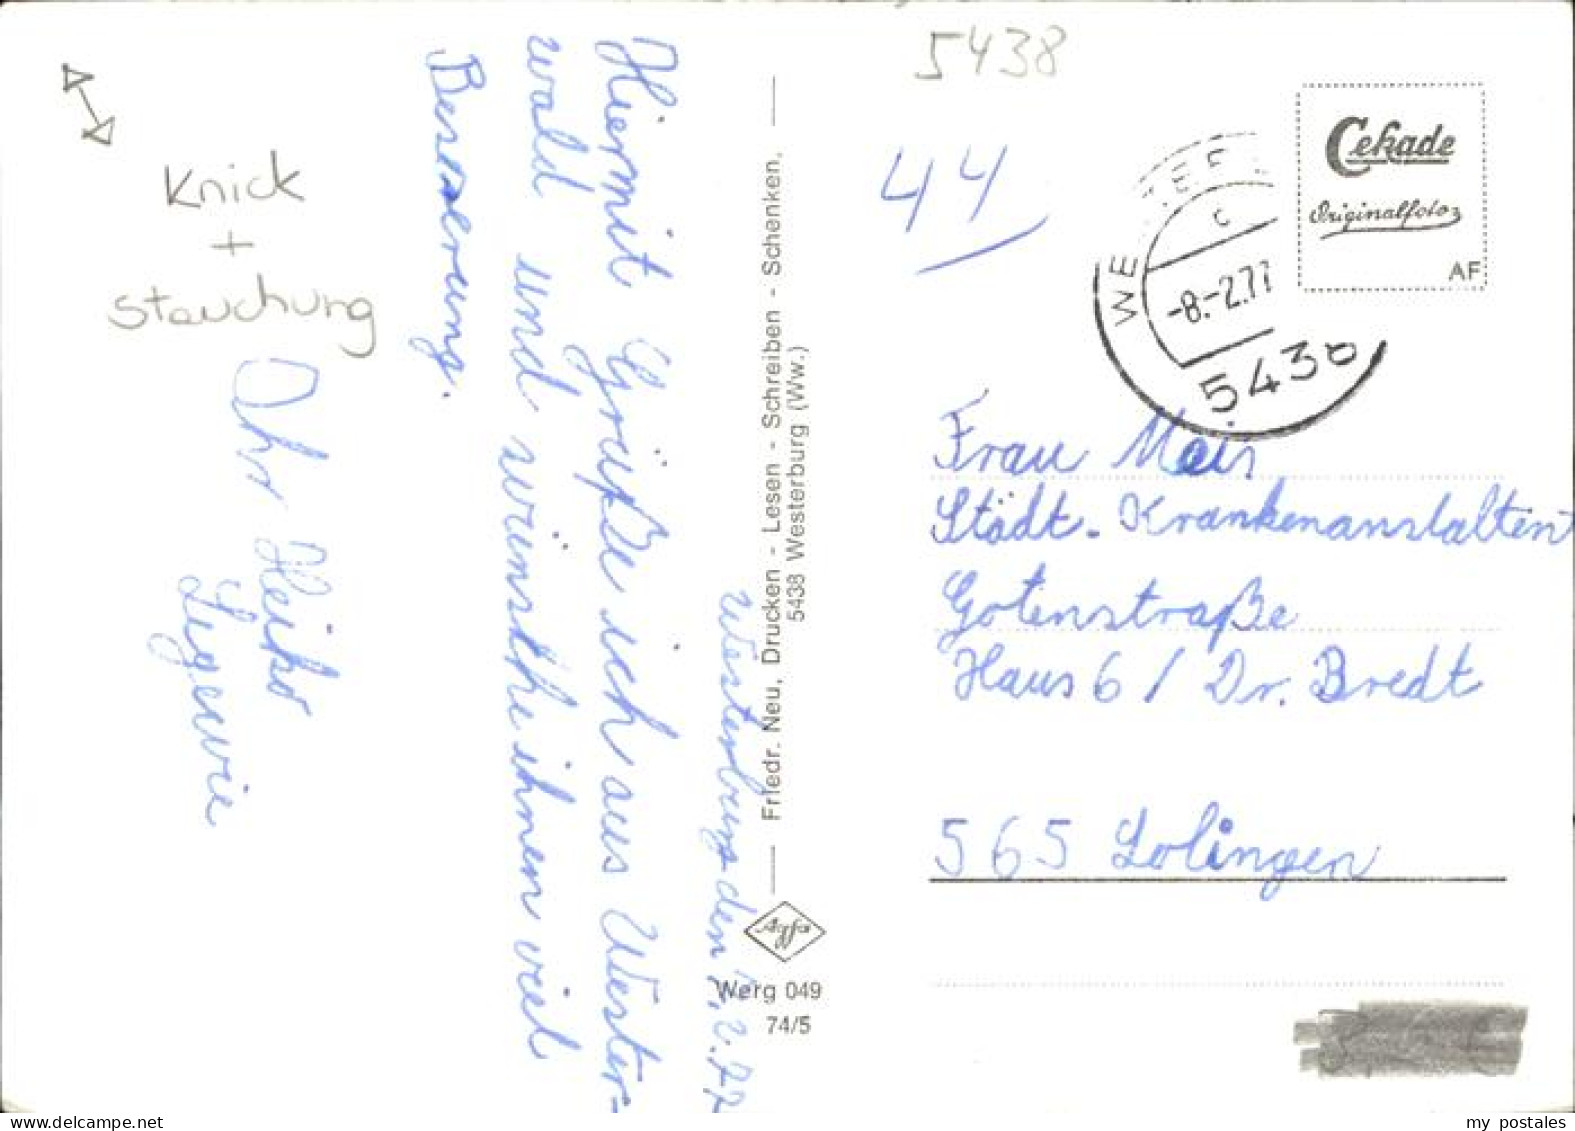 5438
44
Cekade
Originalfoto
AF
-8.-2.77
5438
Knick
+
Stauchung
Westerburg den 7.2.77
Hiermit Grüße ich aus Wester=
wald und wünsche ihnen viel
Besserung.
Ihr Heiko
Friedr. Neu, Drucken - Lesen - Schreiben - Schenken,
5438 Westerburg (Ww.)
Agfa
Werg 049
74/5
Frau
Städt. Krankenanstalten
Gotenstraße
Haus 6 / Dr. Bredt
565 Solingen
my postales